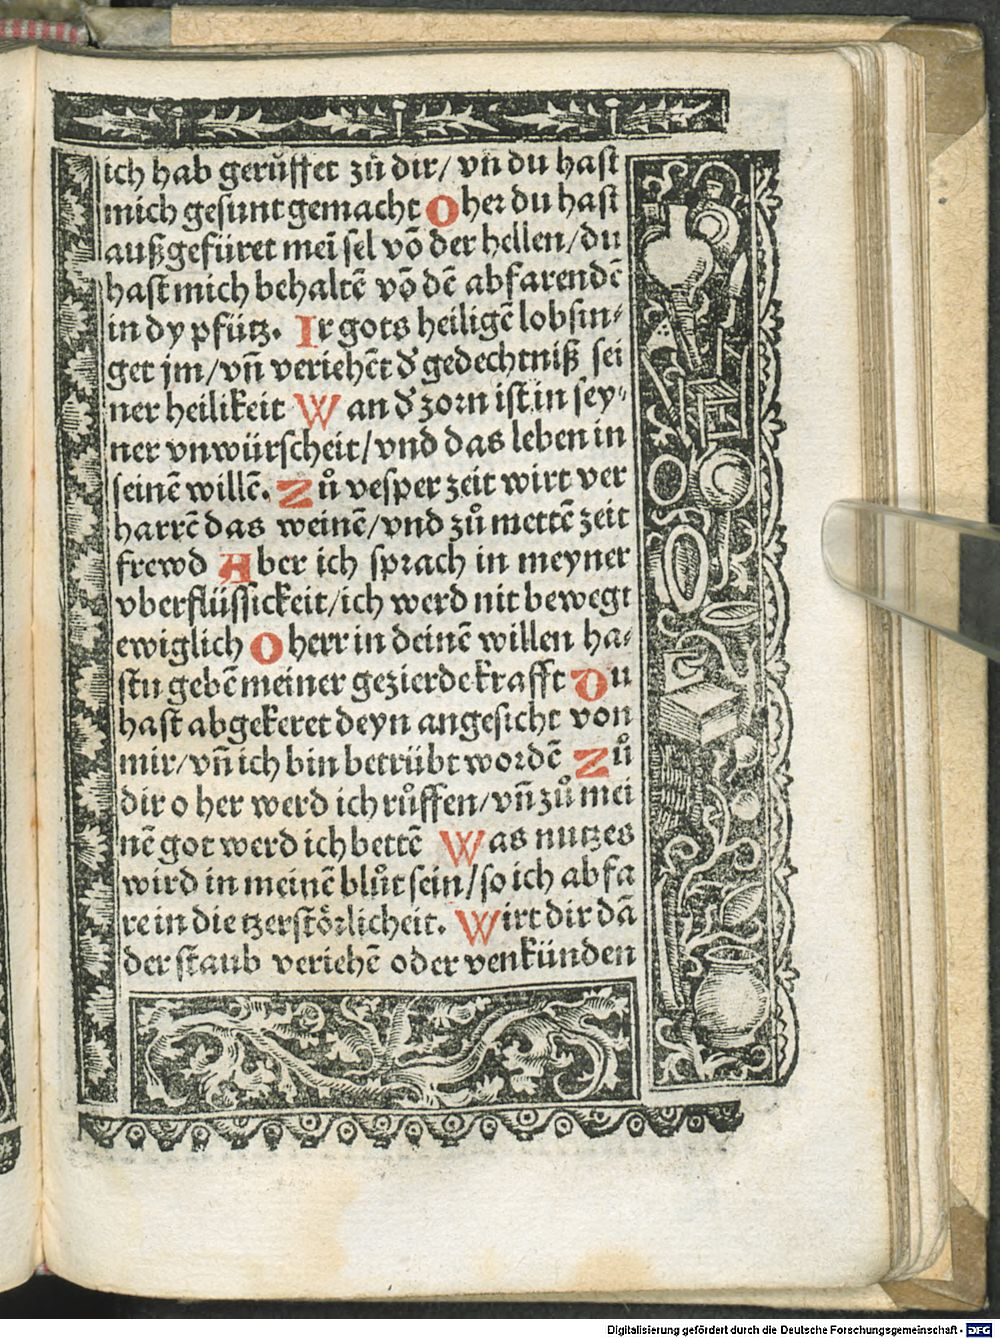 ich hab gerůffet zů dir/ vn̄ du hast
mich gesunt gemacht O her du hast
außgefüret mei̅ sel vō der hellen/du
hast mich behaltē vō dē abfarendē
in dy pfütz. Ir gots heiligē lobsin⸗
get jm/vn̄ veriehēt dʾ gedechtniß sei
ner heilikeit Wan dʾ zorn ist in sey⸗
ner vnwürscheit/vnd das leben in
seinē willē. Zů vesper zeit wirt ver
harrē das weinē/vnd zů mettē zeit
frewd Aber ich sprach in meyner
vberflüssickeit/ich werd nit bewegt
ewiglich O herr in deinē willen ha⸗
stu gebē meiner gezierde krafft Du
hast abgekeret deyn angesicht von
mir/vn̄ ich bin betrübt wordē Zů
dir o her werd ich růffen/vn̄ zů mei
nē got werd ich bettē Was nutzes
wird in meinē blůt sein/so ich abfa
re in die tzerstörlicheit. Wirt dir dā
der staub veriehē oder venkünden
Digitalisierung gefördert durch die Deutsche Forschungsgemeinschaft - DFG